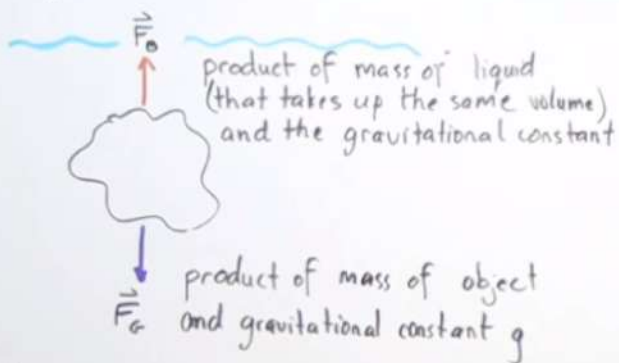 F⃗B
product of mass of liquid
(that takes up the same volume)
and the gravitational constant
product of mass of object
F⃗G and gravitational constant g